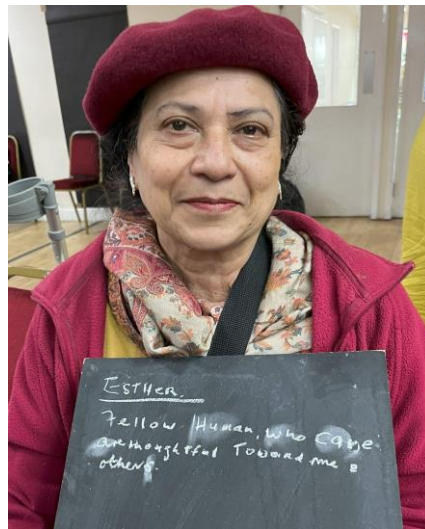 ESTHER.
Fellow Human, who care
are thoughtful Toward me &
others.